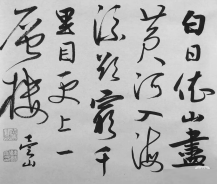 白日依山盡
黄河入海
流欲窮千
里目更上一
層樓
雲山